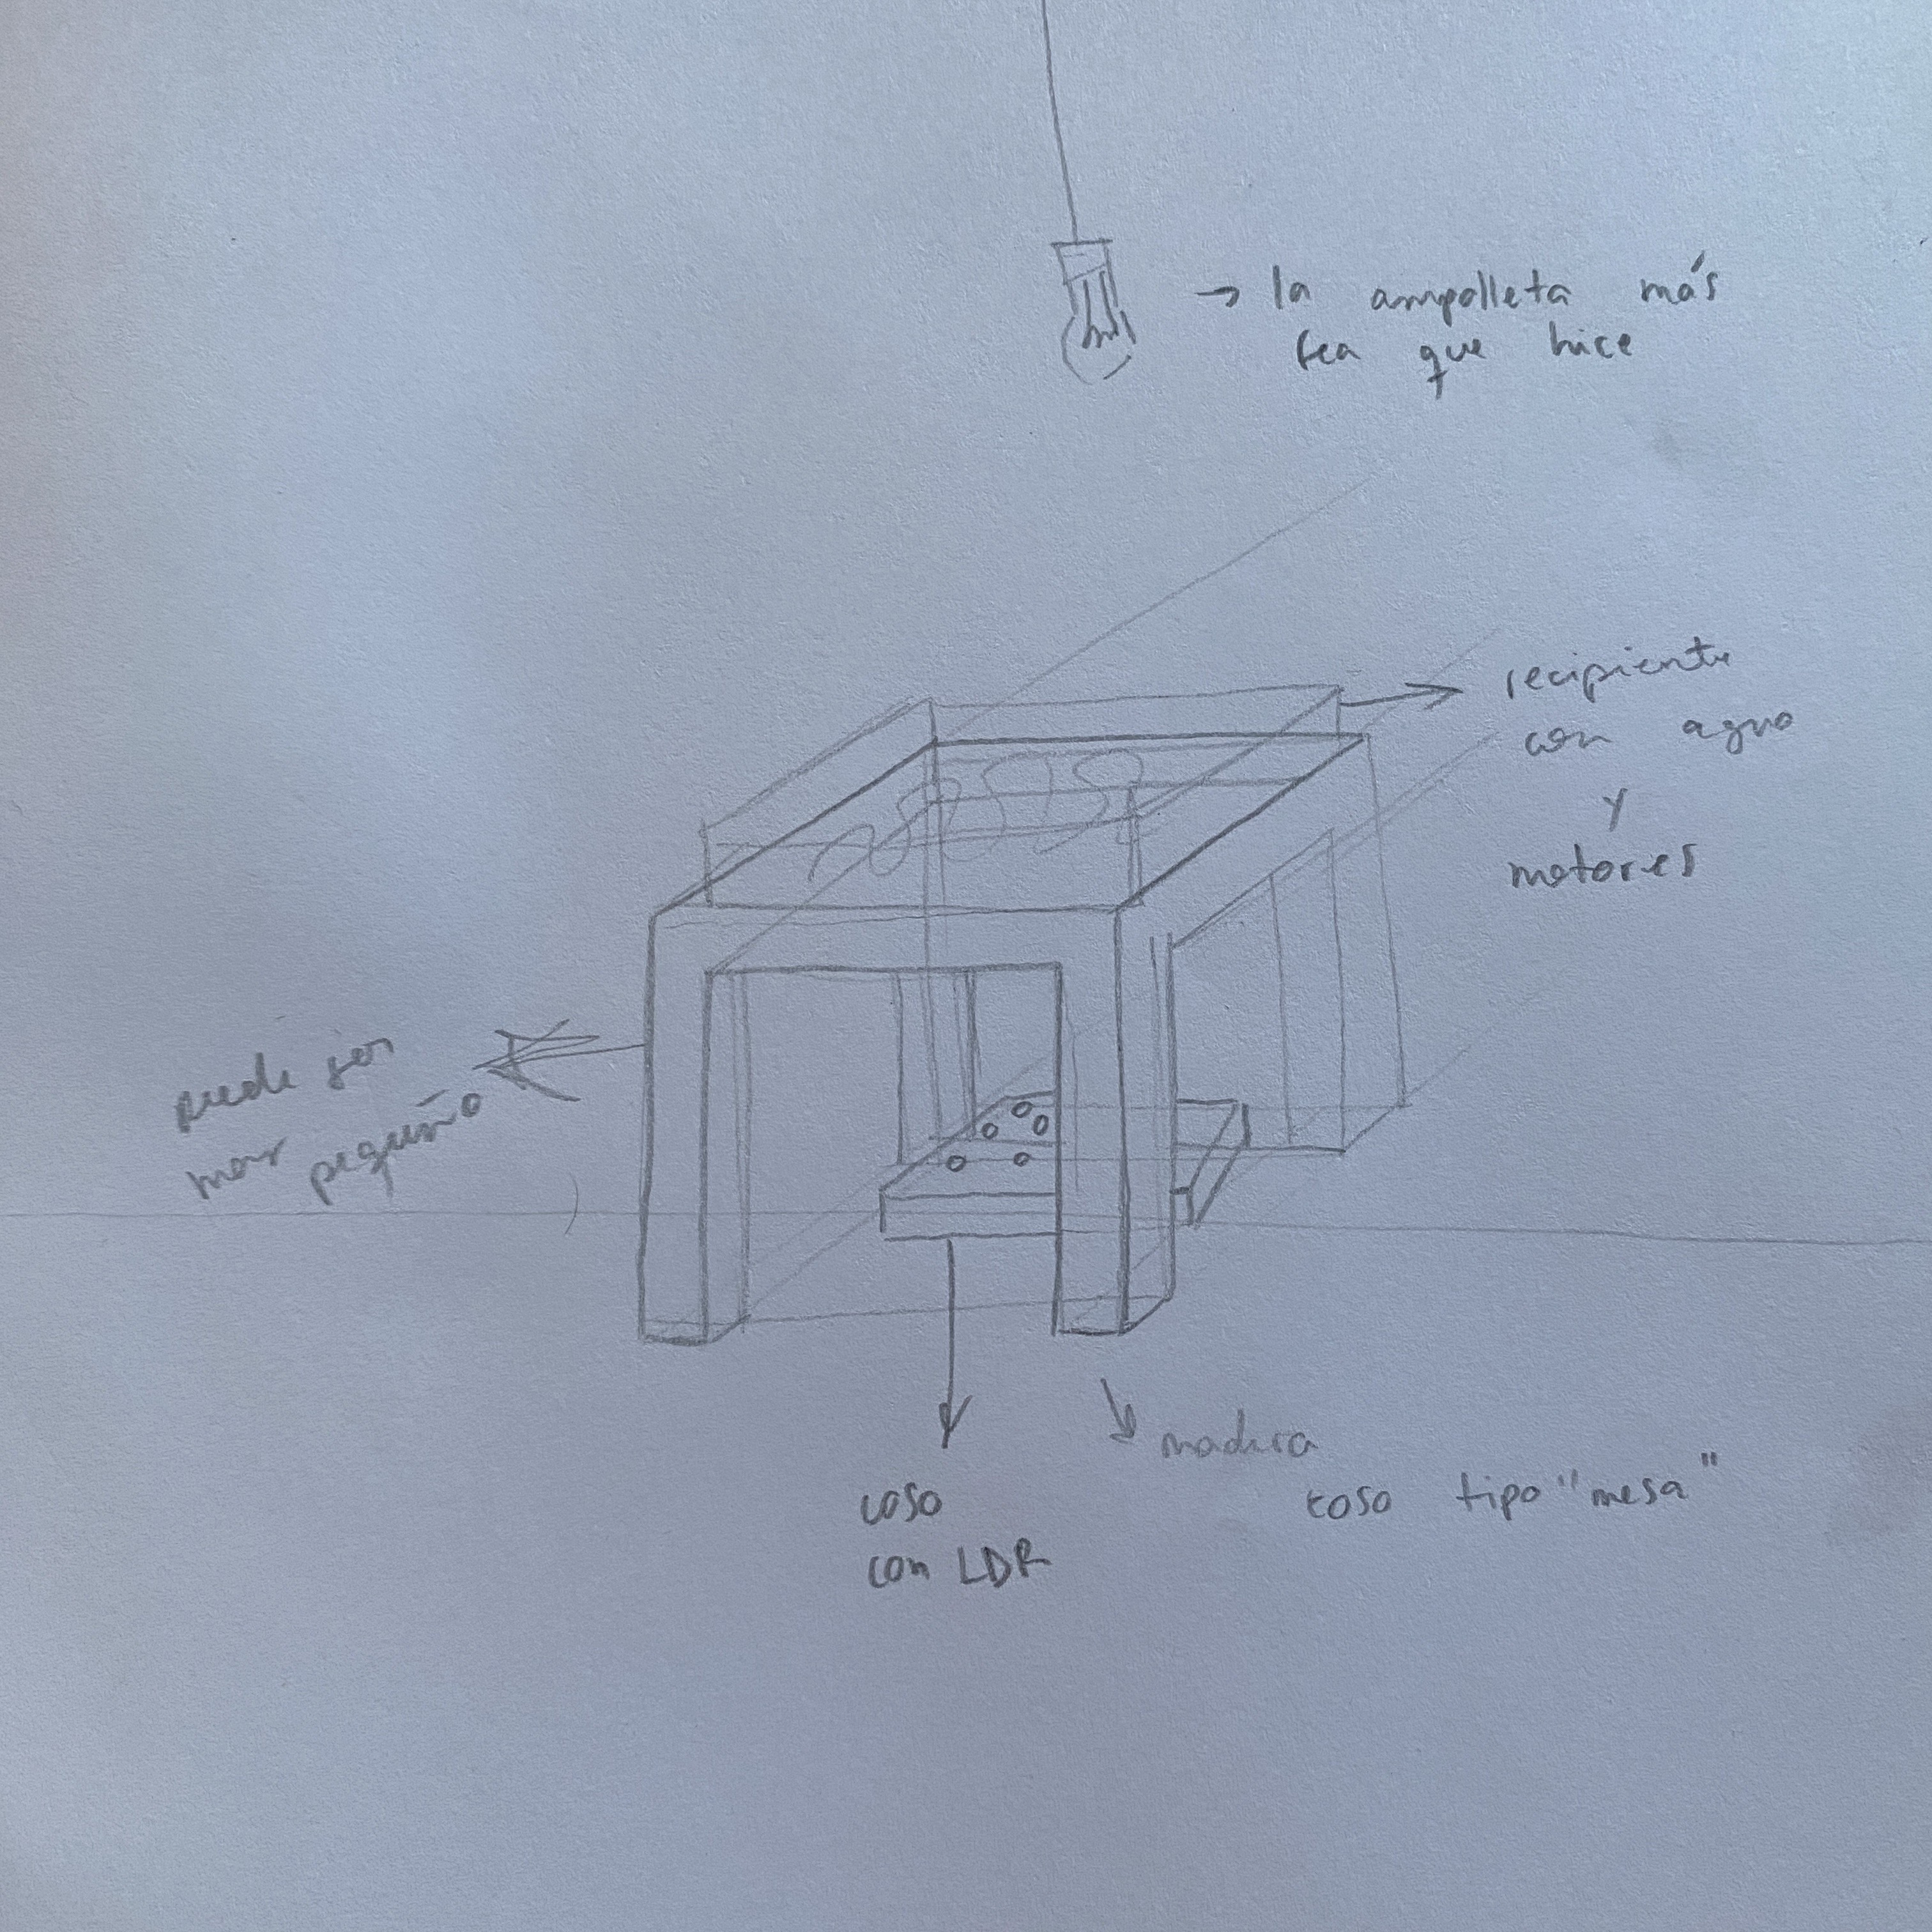 → la ampolleta más
fea que hice
recipiente
con agua
y
motores
puede ser
mas pequeño
madera
coso tipo "mesa"
coso
con LDR